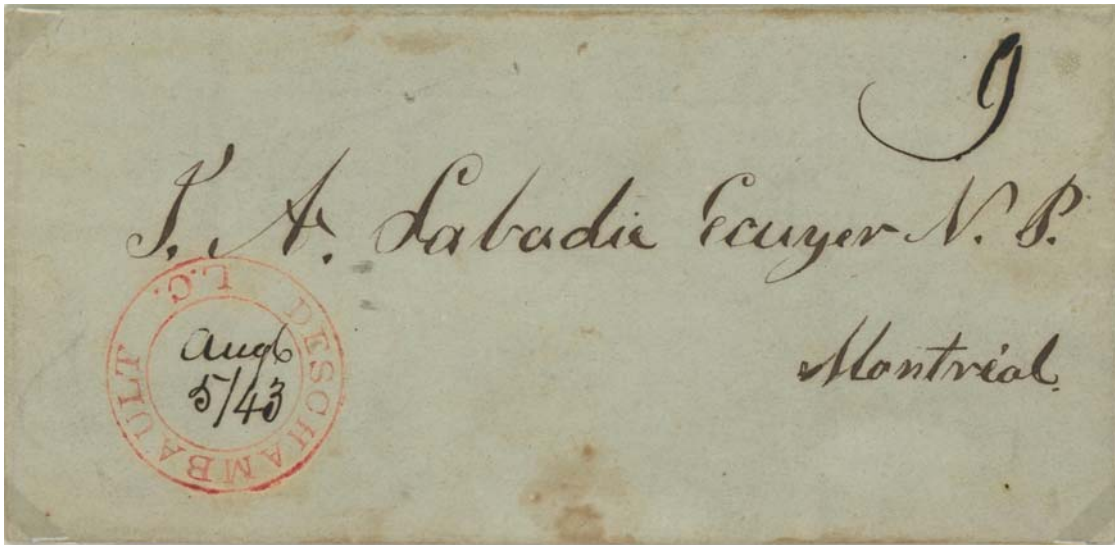 9
J. A. Labadie Ecuyer N. P.
Montréal
DESCHAMBAULT L.C.
Aug
5/43